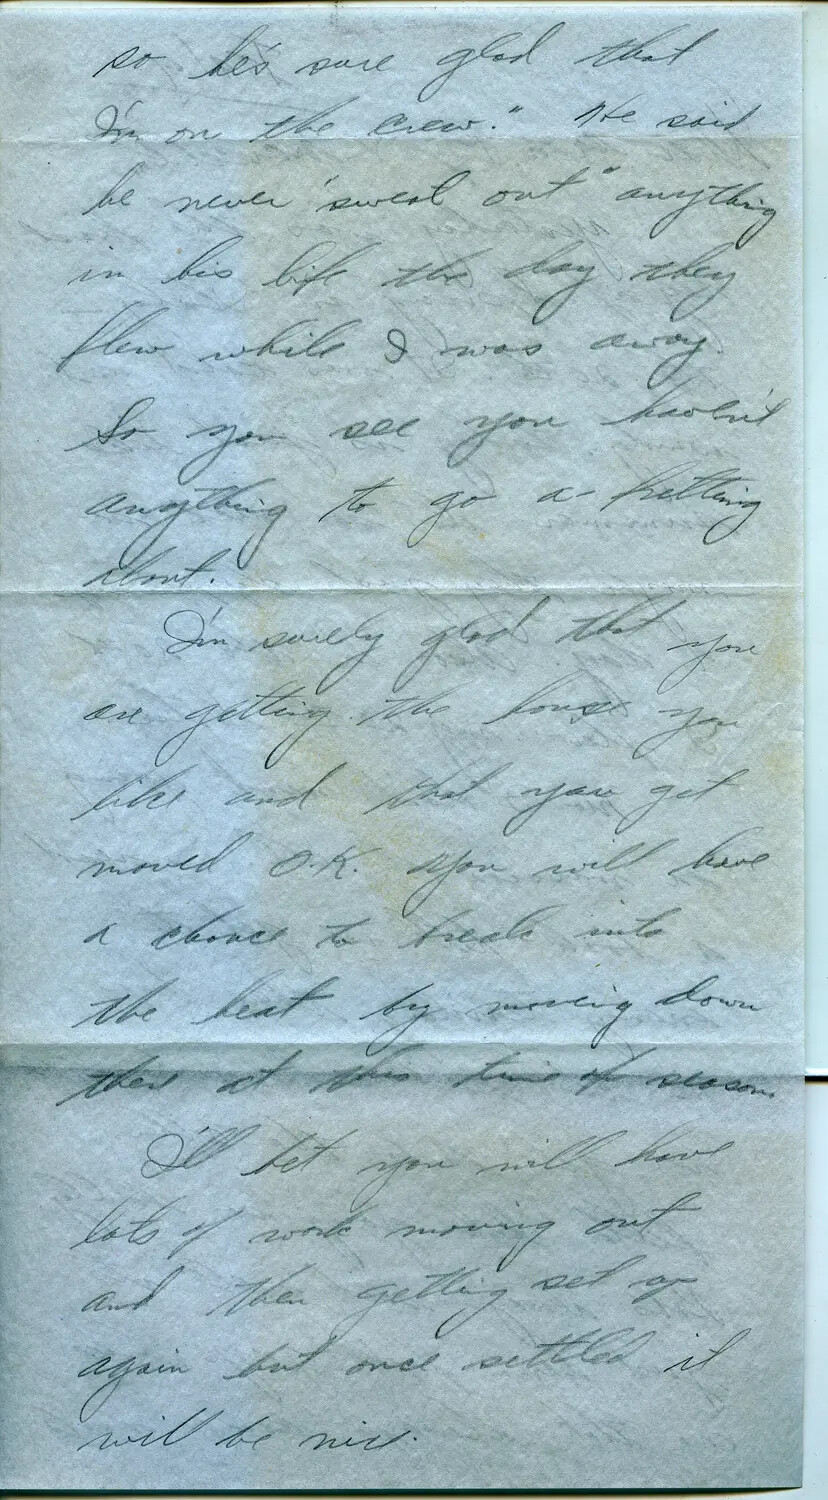 so he's sure glad that
I'm on the crew." He said
he never "sweat out" anything
in his life the day they
flew while I was away.
So you see you haven't
anything to go a-fretting
about.
I'm surely glad that you
are getting the house you
like and that you get
moved O.K. You will have
a chance to break into
the heat by moving down
there at this time of season.
I'll bet you will have
lots of work moving out
and then getting set up
again but once settled it
will be nice.